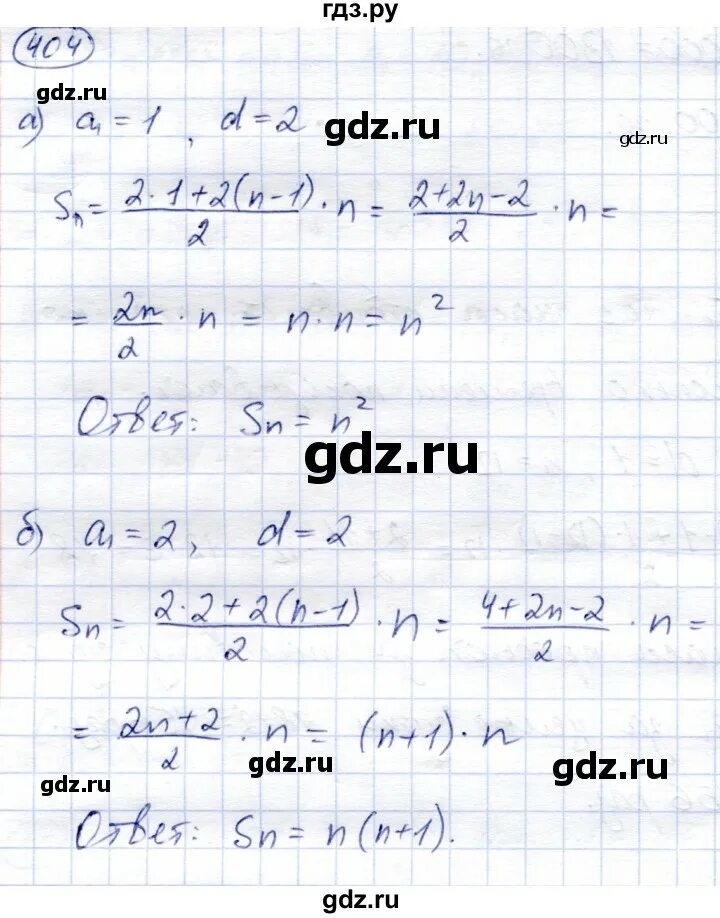 гдз.ру
404
gdz.ru
а) a₁ = 1, d = 2
gdz.ru
gdz.ru
Sₙ = (2·1+2(n-1))/2 · n = (2+2n-2)/2 · n =
= 2n/2 · n = n·n = n²
Ответ: Sₙ = n²
gdz.ru
б) a₁ = 2, d = 2
Sₙ = (2·2+2(n-1))/2 · n = (4+2n-2)/2 · n =
= (2n+2)/2 · n = (n+1)·n
gdz.ru
gdz.ru
gdz.ru
Ответ: Sₙ = n(n+1).
gdz.ru